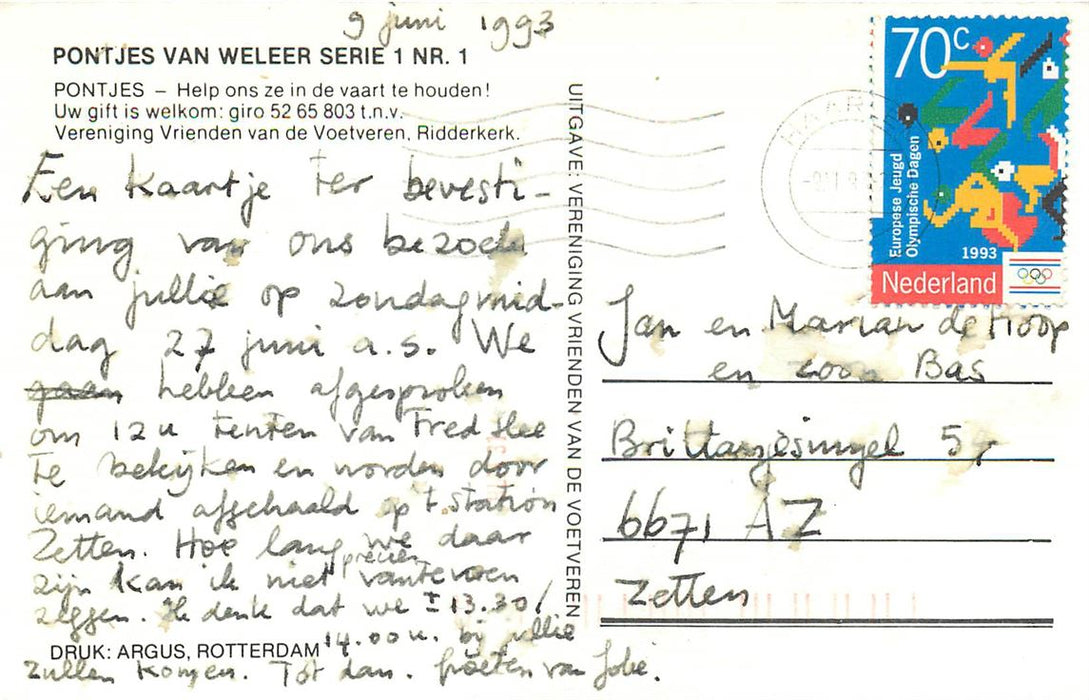 9 juni 1993
PONTJES VAN WELEER SERIE 1 NR. 1
PONTJES – Help ons ze in de vaart te houden!
Uw gift is welkom: giro 52 65 803 t.n.v.
Vereniging Vrienden van de Voetveren, Ridderkerk.
Een kaartje ter bevesti-
ging van ons bezoek
aan jullie op zondagmid-
dag 27 juni a.s. We
gaan hebben afgesproken
om 12 u tenten van Fred Slee
te bekijken en worden door
iemand afgehaald op 't station
Zetten. Hoe lang we daar
precies
zijn kan ik niet van tevoren
zeggen. Ik denk dat we ± 13.30/
14.00 u. bij jullie
zullen komen. Tot dan. Groeten van Jobé.
DRUK: ARGUS, ROTTERDAM
UITGAVE: VERENIGING VRIENDEN VAN DE VOETVEREN
70c
Europese Jeugd
Olympische Dagen
1993
Nederland
Jan en Marian de Hoop
en zoon Bas
Brittanjesingel 5
6671 AZ
Zetten